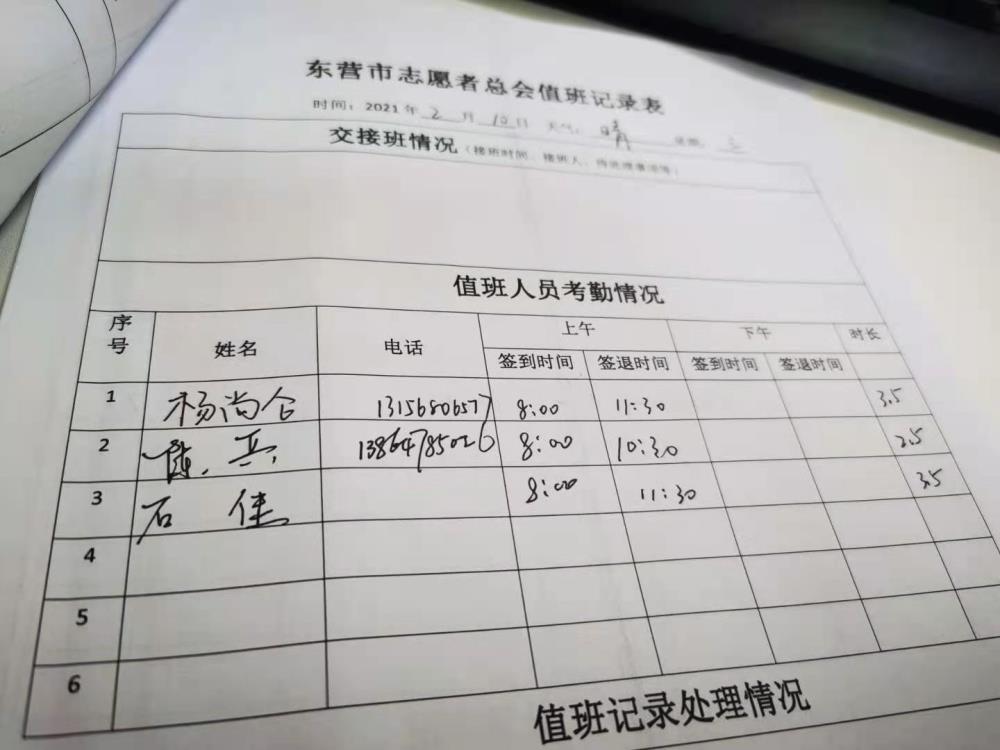 东营市志愿者总会值班记录表
时间：2021年2月10日 天气：晴 星期：三
交接班情况（接班时间、接班人、待处理事项等）
值班人员考勤情况
序号 姓名 电话 上午 下午 时长
签到时间 签退时间 签到时间 签退时间
1 杨尚合 13156806577 8:00 11:30 3.5
2 陈兵 13864785026 8:00 10:30 2.5
3 石佳 8:00 11:30 3.5
4
5
6
值班记录处理情况